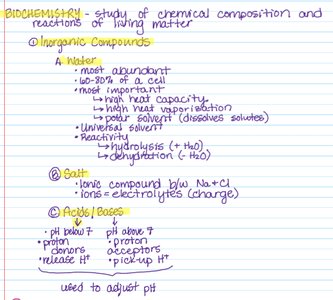 BIOCHEMISTRY - study of chemical composition and
reactions of living matter
① Inorganic Compounds
A. Water
• most abundant
• 60-80% of a cell
• most important
↳ high heat capacity
↳ high heat vaporization
↳ polar solvent (dissolves solutes)
• Universal solvent
• Reactivity
↳ hydrolysis (+ H₂O)
↳ dehydration (- H₂O)
Ⓑ Salt
• Ionic compound b/w Na + Cl
• ions = electrolytes (charge)
Ⓒ Acids/Bases
• pH below 7 pH above 7
• proton • proton
donors acceptors
• release H⁺ • pick-up H⁺
used to adjust pH